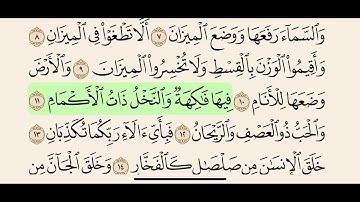 وَالسَّمَاءَ رَفَعَهَا وَوَضَعَ الْمِيزَانَ ٧ أَلَّا تَطْغَوْا فِي الْمِيزَانِ ٨
وَأَقِيمُوا الْوَزْنَ بِالْقِسْطِ وَلَا تُخْسِرُوا الْمِيزَانَ ٩ وَالْأَرْضَ
وَضَعَهَا لِلْأَنَامِ ١٠ فِيهَا فَاكِهَةٌ وَالنَّخْلُ ذَاتُ الْأَكْمَامِ ١١
وَالْحَبُّ ذُو الْعَصْفِ وَالرَّيْحَانُ ١٢ فَبِأَيِّ آلَاءِ رَبِّكُمَا تُكَذِّبَانِ ١٣
خَلَقَ الْإِنسَانَ مِن صَلْصَالٍ كَالْفَخَّارِ ١٤ وَخَلَقَ الْجَانَّ مِن